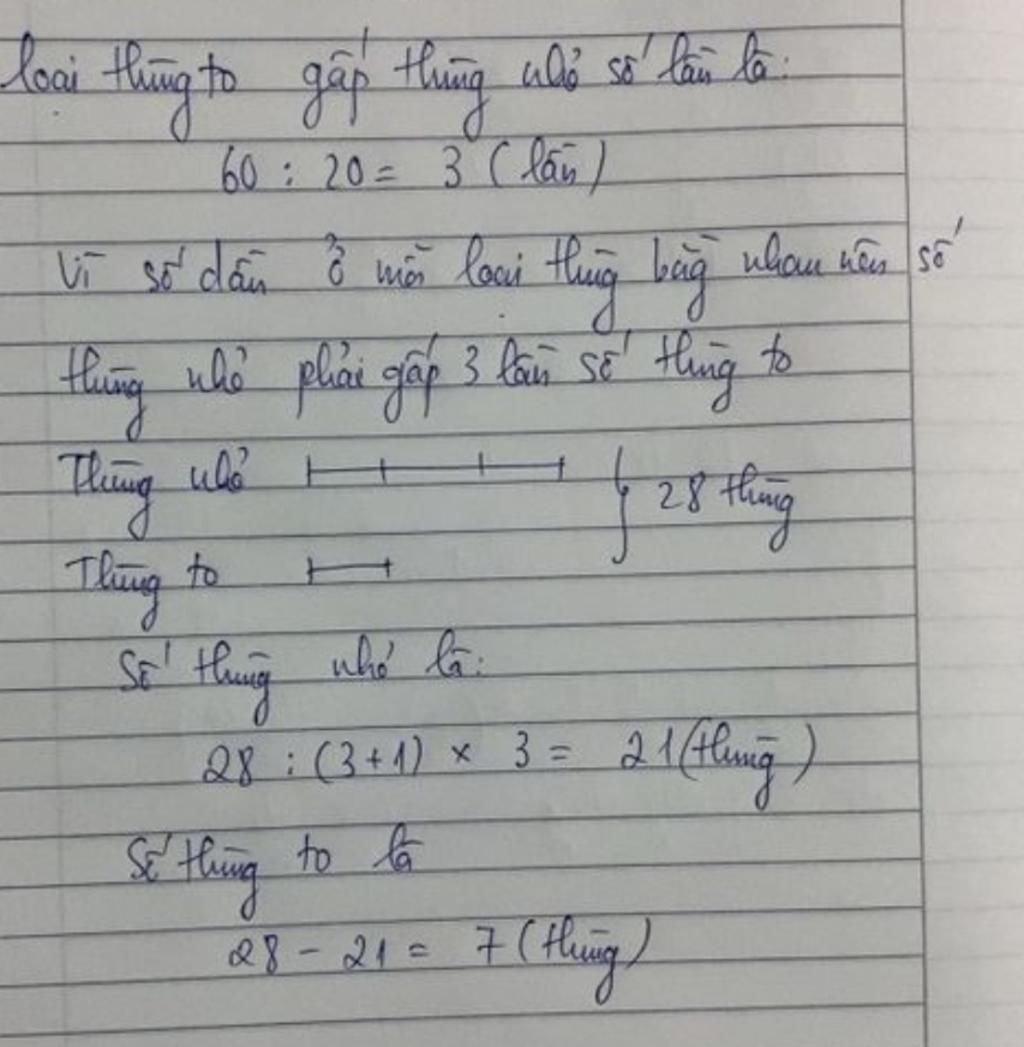 loại thùng to gấp thùng nhỏ số lần là:
60 : 20 = 3 (lần)
Vì số dầu ở mỗi loại thùng bằng nhau nên số
thùng nhỏ phải gấp 3 lần số thùng to
Thùng nhỏ 28 thùng
Thùng to
Số thùng nhỏ là:
28 : (3+1) × 3 = 21 (thùng)
Số thùng to là
28 - 21 = 7 (thùng)